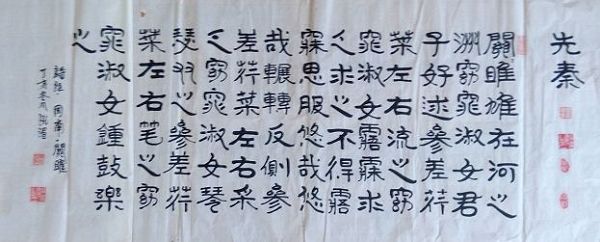 先秦
關雎在河之
洲窈窕淑女君
子好逑參差荇
菜左右流之窈
窕淑女寤寐求
之求之不得寤
寐思服悠哉悠
哉輾轉反側參
差荇菜左右采
之窈窕淑女琴
瑟友之參差荇
菜左右笔之窈
窕淑女鍾鼓樂
之
詩經·周南·關雎
丁亥冬月